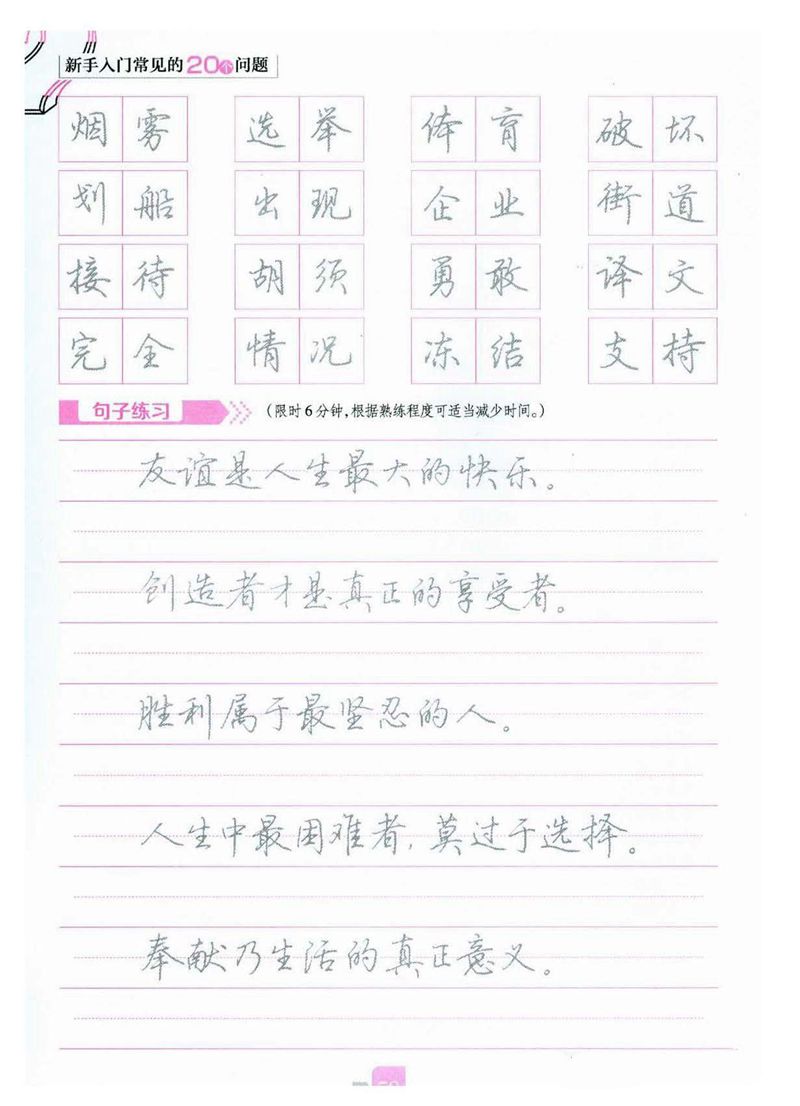 新手入门常见的20个问题
烟雾 选举 体育 破坏
划船 出现 企业 街道
接待 胡须 勇敢 译文
完全 情况 冻结 支持
句子练习 (限时6分钟,根据熟练程度可适当减少时间。)
友谊是人生最大的快乐。
创造者才是真正的享受者。
胜利属于最坚忍的人。
人生中最困难者,莫过于选择。
奉献乃生活的真正意义。